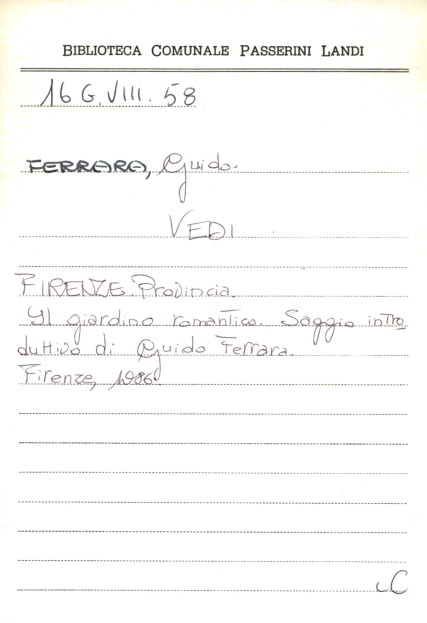 BIBLIOTECA COMUNALE PASSERINI LANDI
16 G.VIII. 58
FERRARA, Guido.
VEDI
FIRENZE. Provincia.
Il giardino romantico. Saggio intro_
duttivo di Guido Ferrara.
Firenze, 1986